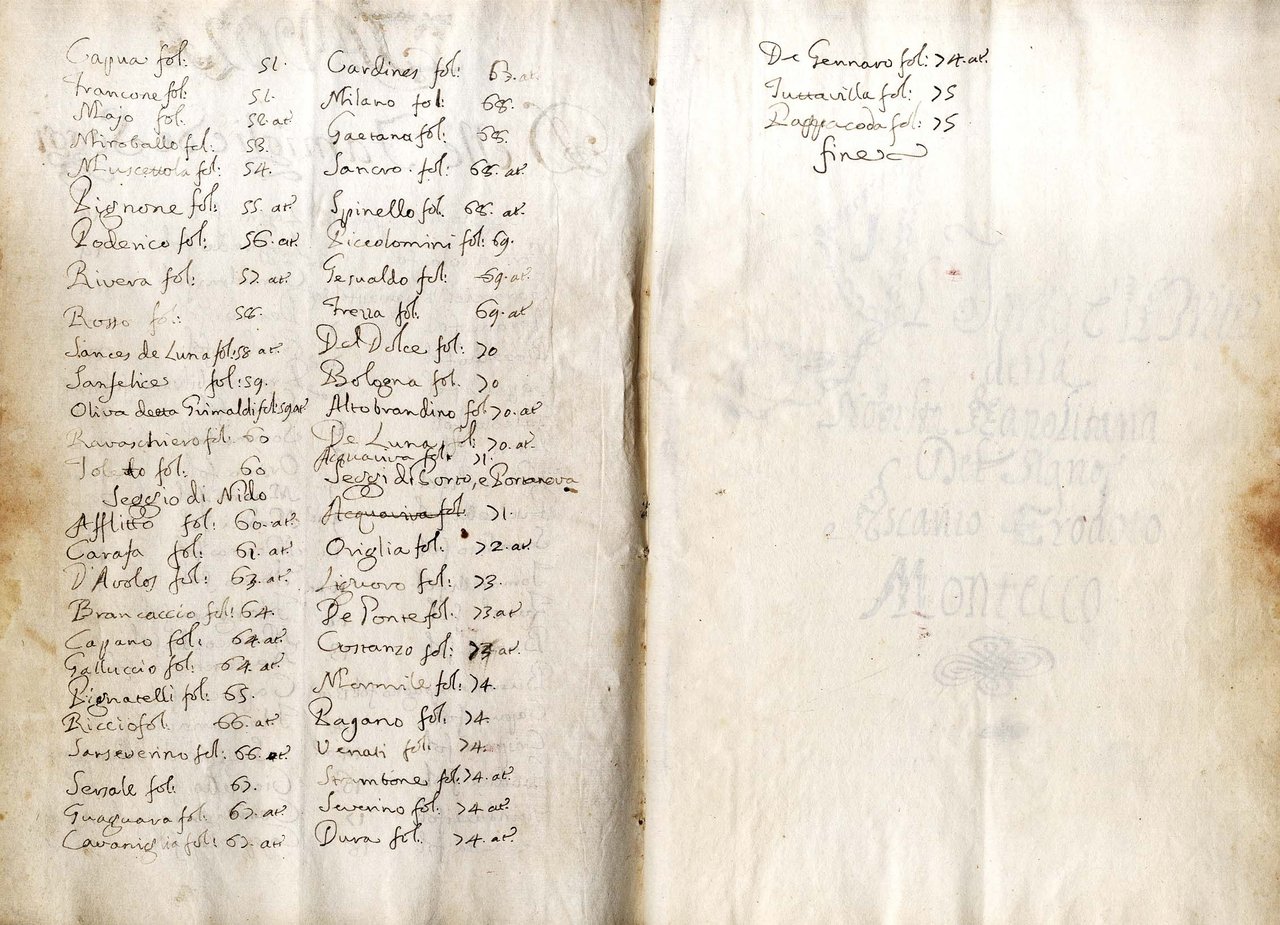 Capua fol: 51.
Francone fol: 51.
Majo fol: 52. at.
Miroballo fol: 53.
Muscettola fol: 54.
Pignone fol: 55. at.
Poderico fol: 56. at.
Rivera fol: 57. at.
Rosso fol: 58.
Sances de Luna fol: 58 at.
Sanfelice fol: 59.
Oliva detta Grimaldi fol: 59 at.
Ravaschiero fol: 60
Toledo fol: 60
Seggio di Nido
Afflitto fol: 60. at.
Carafa fol: 61. at.
D'Avolos fol: 63. at.
Brancaccio fol: 64.
Capano fol: 64. at.
Galluccio fol: 64. at.
Pignatelli fol: 65.
Riccio fol: 66. at.
Sanseverino fol: 66. at.
Sersale fol: 67.
Guaguara fol: 67. at.
Cavaniglia fol: 67. at.
Cardines fol: 67. at.
Milano fol: 68.
Gaetana fol: 68.
Sancro. fol: 68. at.
Spinello fol: 68. at.
Piccolomini fol: 69.
Gesualdo fol: 69. at.
Frezza fol: 69. at
Del Dolce fol: 70
Bologna fol. 70
Altobrandino fol 70. at
De Luna fol: 70. at.
Acquaviva fol: 71.
Seggi di Porto, e Portanova
Acquaviva fol. 71.
Origlia fol: 72. at.
Liguoro fol: 73.
De Ponte fol. 73. at.
Costanzo fol: 73 at.
Mormile fol: 74.
Pagano fol: 74.
Venati fol: 74.
Strambone fol: 74. at.
Severino fol: 74 at.
Dura fol: 74. at.
De Gennaro fol: 74. at.
Tuttavilla fol: 75
Pappacoda fol: 75
fine
della
Nobiltà Napolitana
Del Sigr